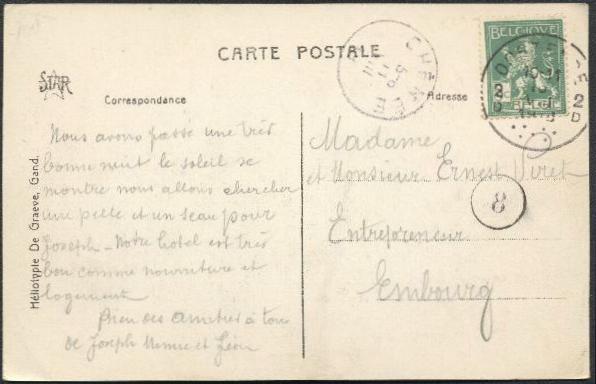 CARTE POSTALE
STAR
Correspondance
Adresse
BELGIQUE
BELGIË
OOSTENDE
2 2
D D
CHÊNÉE
8
Héliotypie De Graeve, Gand.
Nous avons passé une très
bonne nuit le soleil se
montre nous allons chercher
une pelle et un seau pour
Joseph – Notre hôtel est très
bon comme nourriture et
logement
Bien des amitiés à tous
de Joseph et Léon
Madame
et Monsieur Ernest
Entrepreneur
Embourg